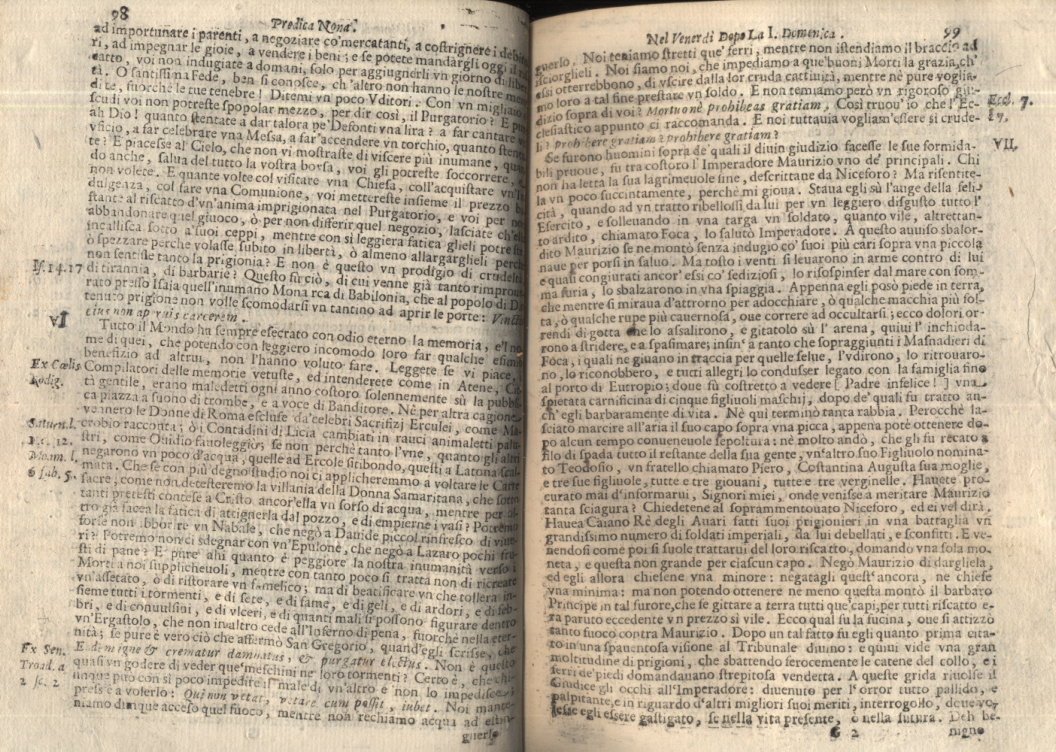 98
Predica Nona.
ad importunare i parenti, a negoziare co'mercatanti, a costrignere i debito
ri, ad impegnar le gioie, a vendere i beni; e se potete mandargli oggi il
voi non indugiate a domani, solo per aggiugnerli vn giorno di
tà. O santissima Fede, ben si conosce, ch'altro non hanno le nostre
di te, fuorchè le tue tenebre! Ditemi vn poco Vditori. Con vn migliaio
scudi voi non potreste spopolar mezzo, per dir così, il Purgatorio? E pur
ah Dio! quanto stentate a dar talora pe'Defonti vna lira? a far cantare vn
vficio, a far celebrare vna Messa, a far'accendere vn torchio, quanto
te? E piacesse al Cielo, che non vi mostraste di viscere più inumane,
do anche, salua del tutto la vostra borsa, voi gli potreste soccorrere, e
non volete. E quante volte col visitare vna Chiesa, coll'acquistare vn'In
dulgenza, col fare vna Comunione, voi mettereste insieme il prezzo
stante al riscatto d'vn'anima imprigionata nel Purgatorio, e voi per non
abbandonare quel giuoco, ò per non differir quel negozio, lasciate ch'ella
incallisca sotto a'suoi ceppi, mentre con sì leggiera fatica glieli potreste
ò spezzare perche volasse subito in libertà, ò almeno allargarglieli perche
non sentisse tanto la prigionia? E non è questo vn prodigio di crudeltà
If. 14. 17 di tirannia, di barbarie? Questo fu ciò, di cui venne già tanto rimprou
rato presso Isaia quell'inumano Monarca di Babilonia, che al popolo di Dio
tenuto prigione non volle scomodarsi vn tantino ad aprire le porte: Vinctis
eius non aperuit carcerem.
VI Tutto il Mondo ha sempre esecrato con odio eterno la memoria, e'l no
me di quei, che potendo con leggiero incomodo loro far qualche esimio
benefizio ad altrui, non l'hanno voluto fare. Leggete se vi piace, i
Ex Cœlio Compilatori delle memorie vetuste, ed intenderete come in Atene, Cit
Rodig. tà gentile, erano maledetti ogni anno costoro solennemente sù la pubbli
ca piazza a suono di trombe, e a voce di Banditore. Nè per altra cagione
vennero le Donne di Roma escluse da'celebri Sacrifizj Erculei, come Ma
Saturn. l. crobio racconta; ò i Contadini di Licia cambiati in rauci animaletti palu
1. c. 12. stri, come Ouidio fauoleggiò; se non perchè tanto l'vne, quanto gli altri
Moam. l. negarono vn poco d'acqua, quelle ad Ercole sitibondo, questi a Latona
6 fab. 5. mata. Che se con più degno studio noi ci applicheremmo a voltare le Carte
sacre, come non detesteremo la villania della Donna Samaritana, che sotto
tanti pretesti contese a Cristo ancor'ella vn sorso di acqua, mentre per al
tro già facea la fatica di attignerla dal pozzo, e di empierne i vasi? Potremo
forse non abborrire vn Nabale, che negò a Dauide piccol rinfresco di viue
ri? Potremo non ci sdegnar con vn'Epulone, che negò a Lazaro pochi fru
sti di pane? E pure ahi quanto è peggiore la nostra inumanità verso i
Morti a noi supplicheuoli, mentre con tanto poco si tratta non di ricreare
vn'assetato, ò di ristorare vn famelico; ma di beatificare vn che tollera in
sieme tutti i tormenti, e di sete, e di fame, e di geli, e di ardori, e di feb
bri, e di conuulsini, e di vlceri, e di quanti mali si possono figurare dentro
vn'Ergastolo, che non in altro cede all'Inferno di pena, fuorchè nella eter
nità; se pure è vero ciò che affermò San Gregorio, quand'egli scrisse, che
Ex Sen. Eodem igne & crematur damnatus, & purgatur electus. Non è questo
Troad. a quasi vn godere di veder que'meschini ne' loro tormenti? Certo è, che chi-
2 sc. 2 unque può con sì poco impedire il male di vn'altro e non lo impedisce,
press'è a volerlo: Qui non vetat, vetare cum possit, iubet. Noi mante
niamo dunque acceso quel fuoco, mentre non rechiamo acqua ad estin
guerlo
Nel Venerdì Dopo La I. Domenica. 99
guerlo. Noi teniamo stretti que' ferri, mentre non istendiamo il braccio ad
isciorglieli. Noi siamo noi, che impediamo a que'buoni Morti la grazia, ch'
essi otterrebbono, di vscire dalla lor cruda cattiuità, mentre nè pure voglia-
mo loro a tal fine prestare vn soldo. E non temiamo però vn rigoroso giu-
dizio sopra di voi? Mortuo ne prohibeas gratiam, Così truou' io che l'Ec- Eccl. 7.
clesiastico appunto ci raccomanda. E noi tuttauia vogliam'essere sì crude- 37.
li? prohibere gratiam? prohibere gratiam?
Se furono huomini sopra de'quali il diuin giudizio facesse le sue formida- VII.
bili pruoue, fu tra costoro l'Imperadore Maurizio vno de' principali. Chi
non ha letta la sua lagrimeuole fine, descrittane da Niceforo? Ma risentite-
la vn poco succintamente, perchè mi gioua. Staua egli sù l'auge della feli-
cità, quando ad vn tratto ribellossi da lui per vn leggiero disgusto tutto l'
Esercito, e solleuando in vna targa vn soldato, quanto vile, altrettan-
to ardito, chiamato Foca, lo salutò Imperadore. A questo auuiso sbalor-
dito Maurizio se ne montò senza indugio co' suoi più cari sopra vna piccola
naue per porsi in saluo. Ma tosto i venti si leuarono in arme contro di lui
e quasi congiurati ancor' essi co' sediziosi, lo risospinser dal mare con som-
ma furia, lo sbalzarono in vna spiaggia. Appenna egli posò piede in terra,
che mentre si miraua d'attrorno per adocchiare, ò qualche macchia più fol-
ta, ò qualche rupe più cauernosa, oue correre ad occultarsi; ecco dolori or-
rendi di gotta che lo assalirono, e gitatolo sù l' arena, quiui l' inchioda-
rono a stridere, e a spasimare; insin' a tanto che sopraggiunti i Masnadieri di
Foca, i quali ne giuano in traccia per quelle selue, l'vdirono, lo ritrouaro-
no, lo riconobbero, e tutti allegri lo condusser legato con la famiglia fino
al porto di Eutropio; doue fù costretto a vedere [ Padre infelice! ] vna
spietata carnificina di cinque figliuoli maschi, dopo de' quali fu tratto an-
ch'egli barbaramente di vita. Nè qui terminò tanta rabbia. Perocchè la-
sciato marcire all'aria il suo capo sopra vna picca, appena potè ottenere do-
po alcun tempo conueneuole sepoltura: nè molto andò, che gli fu recato a
filo di spada tutto il restante della sua gente, vn'altro suo Figliuolo nomina-
to Teodosio, vn fratello chiamato Piero, Costantina Augusta sua moglie,
e tre sue figliuole, tutte e tre giouani, tutte e tre verginelle. Hauete pro-
curato mai d'informarui, Signori miei, onde venisse a meritare Maurizio
tanta sciagura? Chiedetene al soprammentouato Niceforo, ed ei vel dirà.
Hauea Caiano Rè degli Auari fatti suoi prigionieri in vna battaglia vn
grandissimo numero di soldati imperiali, da lui debellati, e sconfitti. E ve-
nendosi come poi si suole trattarui del loro riscatto, domando vna sola mo-
neta, e questa non grande per ciascun capo. Negò Maurizio di dargliela,
ed egli allora chiesene vna minore: negatagli quest'ancora, ne chiese
vna minima: ma non potendo ottenere ne meno questa montò il barbaro
Principe in tal furore, che fe gittare a terra tutti que'capi, per tutti riscatto e-
ra paruto eccedente vn prezzo sì vile. Ecco qual fu la fucina, oue si attizzò
tanto fuoco contra Maurizio. Dopo un tal fatto fu egli quanto prima cita-
to in vna spauentosa visione al Tribunale diuino: e quiui vide vna gran
moltitudine di prigioni, che sbattendo ferocemente le catene del collo, e i
ferri de'piedi domandauano strepitosa vendetta. A queste grida riuolse il
Giudice gli occhi all'Imperadore: diuenuto per l'orror tutto pallido, e
palpitante, e in riguardo d'altri migliori suoi meriti, interrogollo, doue vo-
lesse egli essere gastigato, se nella vita presente, ò nella futura. Deh be-
G 2 nigno